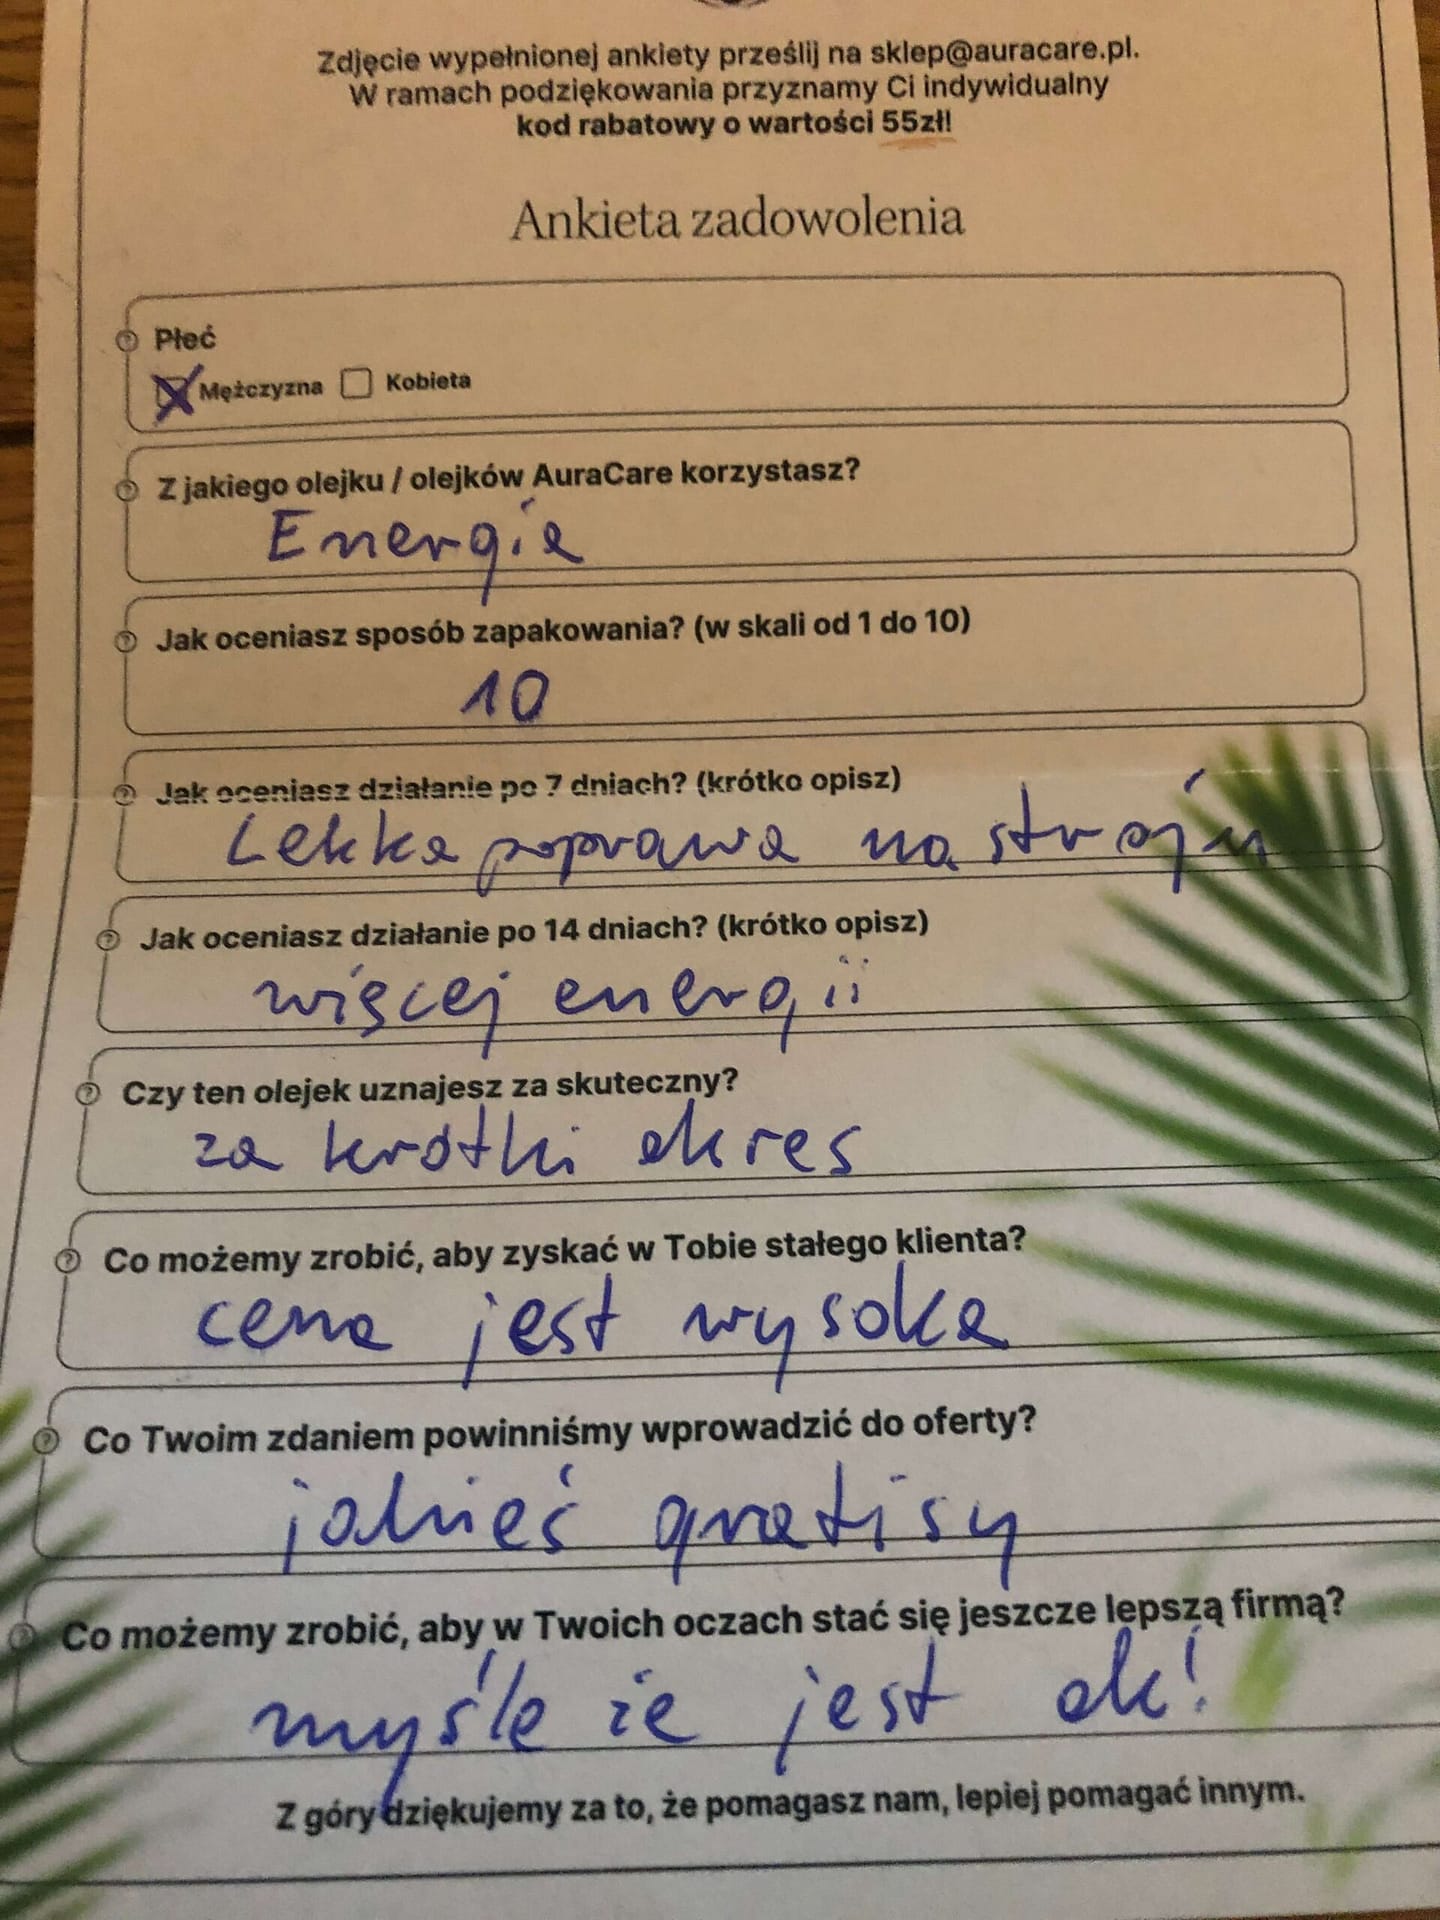 Zdjęcie wypełnionej ankiety prześlij na sklep@auracare.pl.
W ramach podziękowania przyznamy Ci indywidualny
kod rabatowy o wartości 55zł!
Ankieta zadowolenia
Płeć
Mężczyzna Kobieta
Z jakiego olejku / olejków AuraCare korzystasz?
Energia
Jak oceniasz sposób zapakowania? (w skali od 1 do 10)
10
Jak oceniasz działanie po 7 dniach? (krótko opisz)
Lekka poprawa nastroju
Jak oceniasz działanie po 14 dniach? (krótko opisz)
więcej energii
Czy ten olejek uznajesz za skuteczny?
za krótki okres
Co możemy zrobić, aby zyskać w Tobie stałego klienta?
cena jest wysoka
Co Twoim zdaniem powinniśmy wprowadzić do oferty?
jakieś gratisy
Co możemy zrobić, aby w Twoich oczach stać się jeszcze lepszą firmą?
myśle że jest ok!
Z góry dziękujemy za to, że pomagasz nam, lepiej pomagać innym.